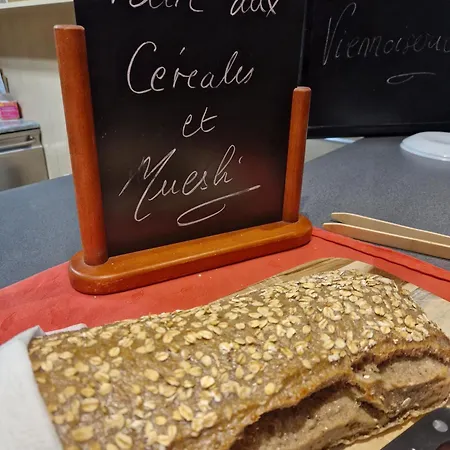 aux
Céréales
et
Muesli
Viennoiserie